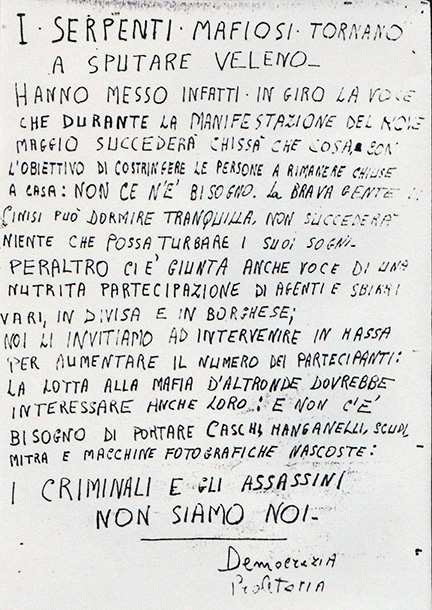 I · SERPENTI · MAFIOSI · TORNANO
A SPUTARE VELENO_
HANNO MESSO INFATTI · IN GIRO LA VOCE
CHE DURANTE LA MANIFESTAZIONE DEL NOVE
MAGGIO SUCCEDERÀ CHISSÀ CHE COSA, CON
L'OBIETTIVO DI COSTRINGERE LE PERSONE A RIMANERE CHIUSE
A CASA: NON CE N'È BISOGNO. La BRAVA GENTE
CINISI PUÒ DORMIRE TRANQUILLA, NON SUCCEDERÀ
NIENTE CHE POSSA TURBARE I SUOI SOGNI_
PERALTRO CI È GIUNTA ANCHE VOCE DI UNA
NUTRITA PARTECIPAZIONE DI AGENTI E SBIRRI
VARI, IN DIVISA E IN BORGHESE;
NOI LI INVITIAMO AD INTERVENIRE IN MASSA
PER AUMENTARE IL NUMERO DEI PARTECIPANTI:
LA LOTTA ALLA MAFIA D'ALTRONDE DOVREBBE
INTERESSARE ANCHE LORO: E NON C'È
BISOGNO DI PORTARE CASCHI, MANGANELLI, SCUDI,
MITRA E MACCHINE FOTOGRAFICHE NASCOSTE:
I CRIMINALI E GLI ASSASSINI
NON SIAMO NOI_
Democrazia
Proletaria